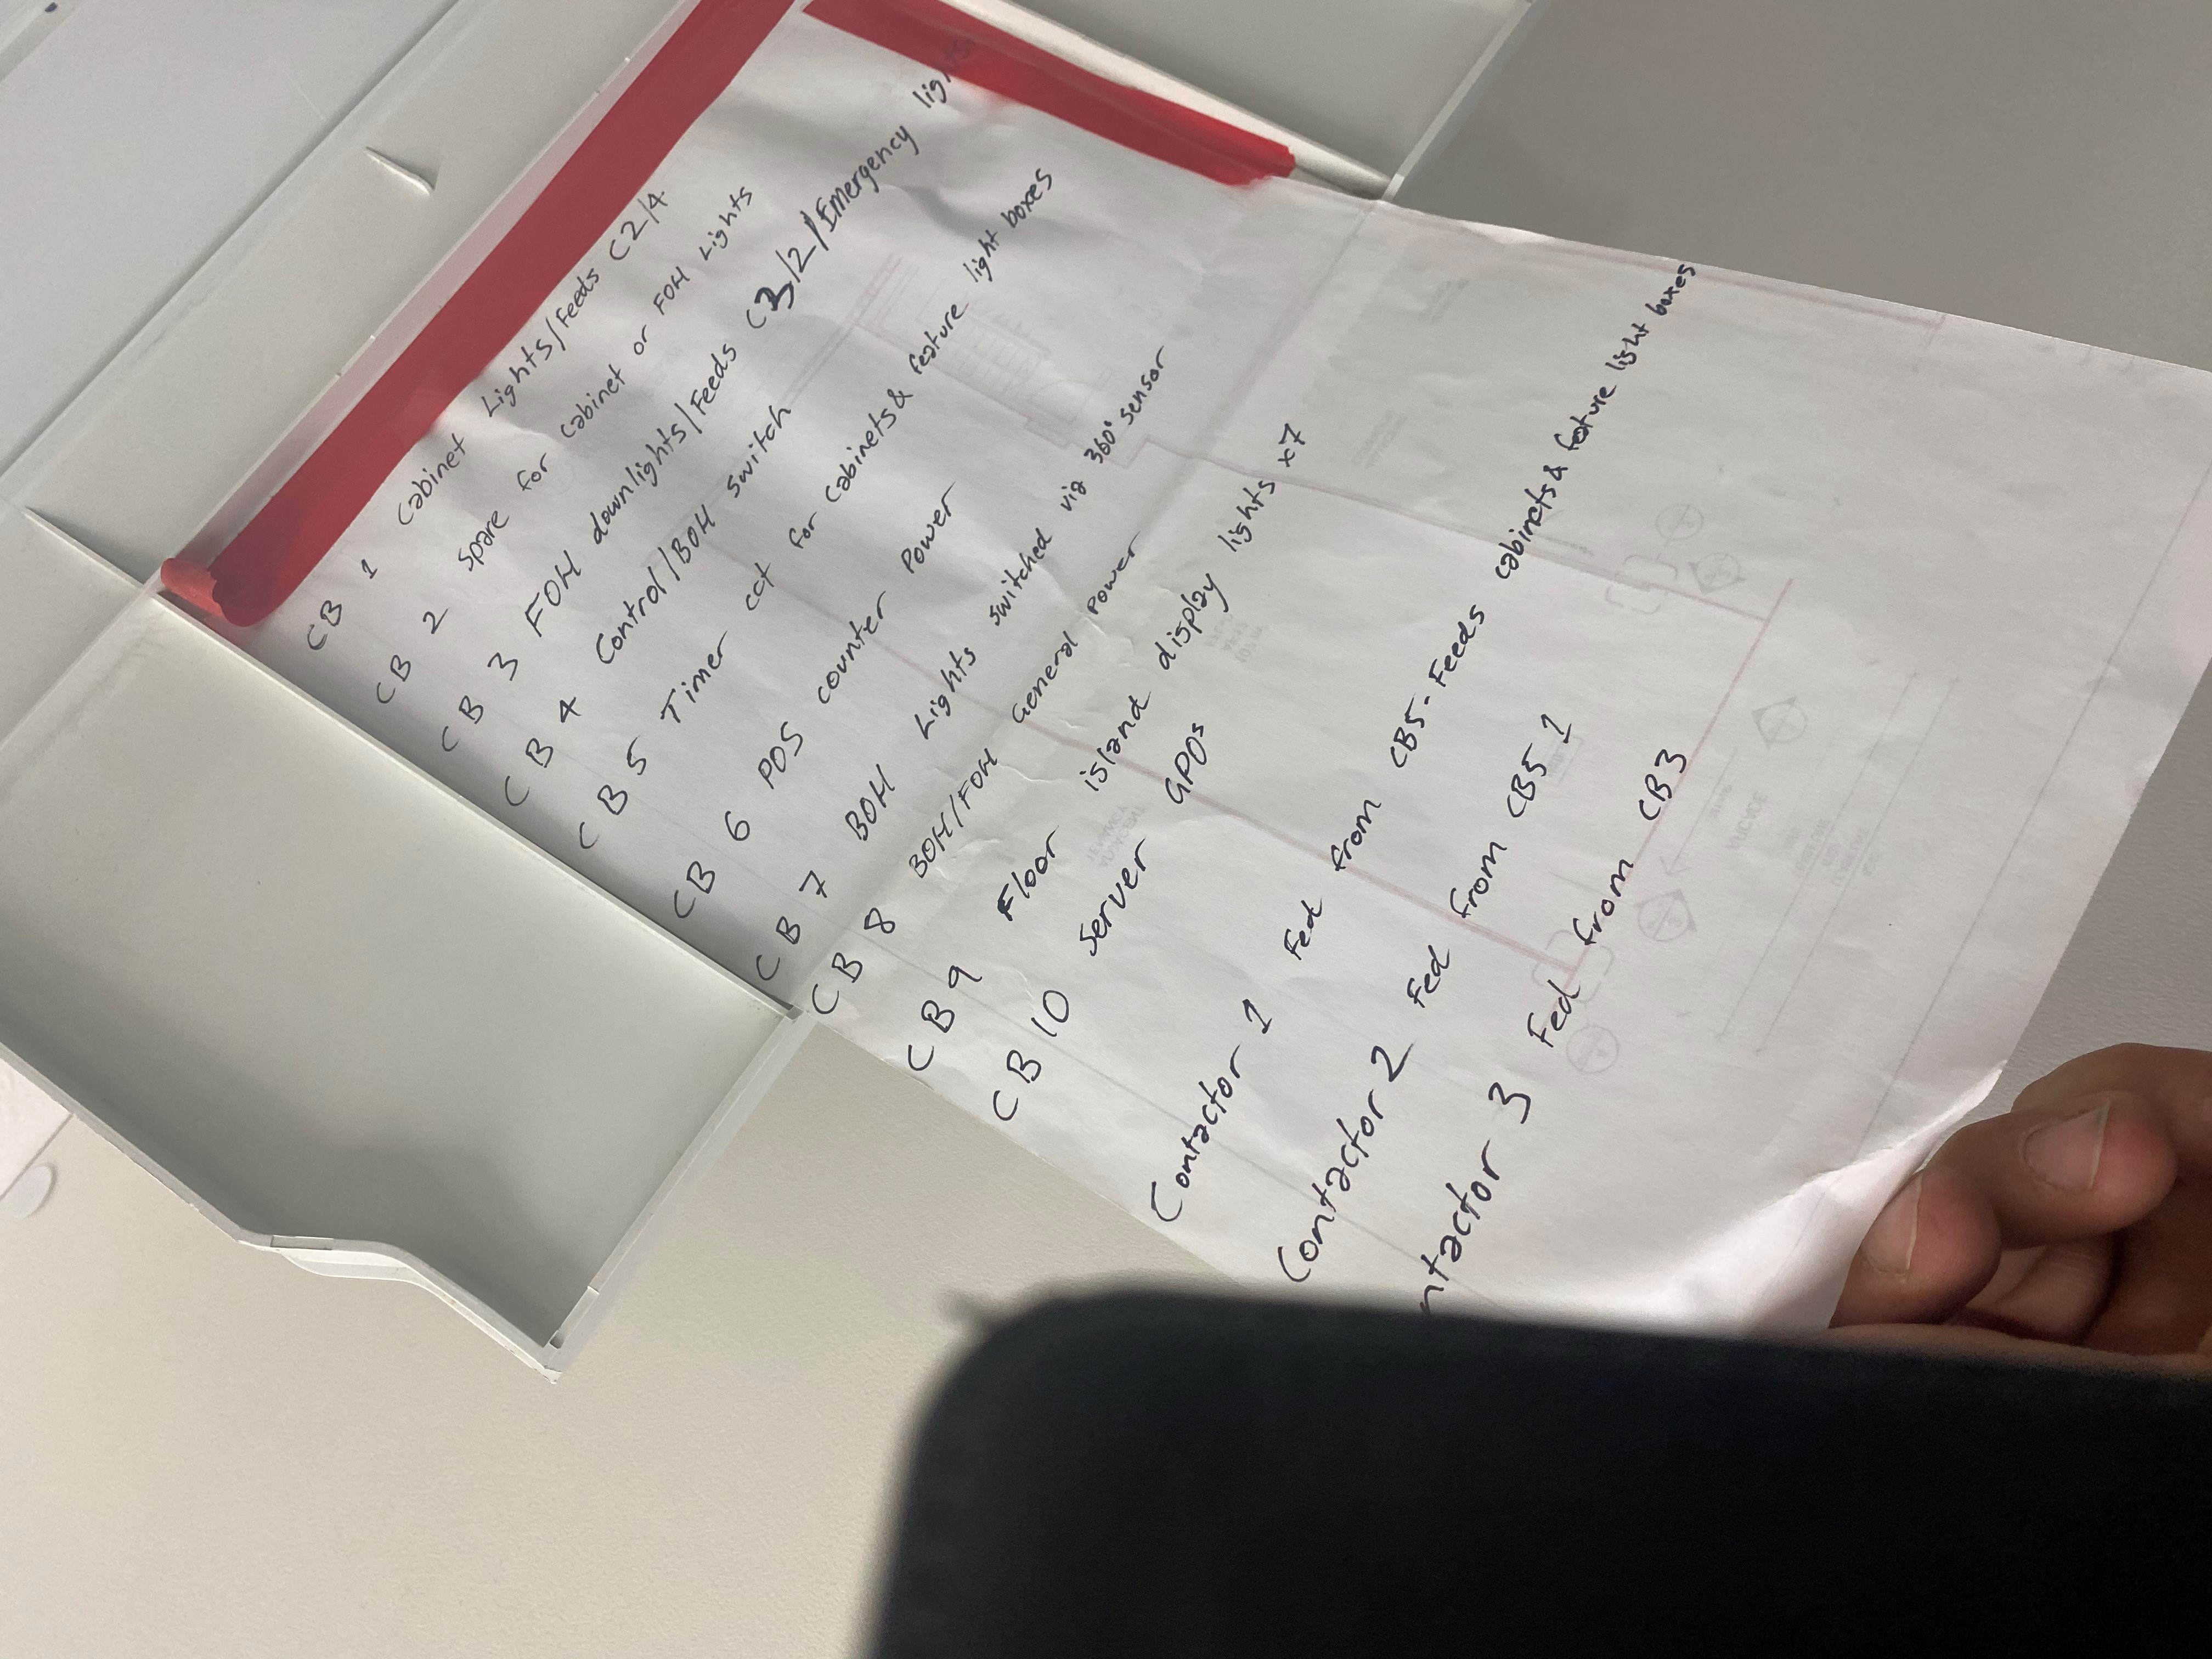 CB 1 Cabinet Lights/Feeds C2/4
CB 2 Spare for cabinet or FOH Lights
CB 3 FOH downlights/Feeds C3/2/Emergency lights
CB 4 Control/BOH switch
CB 5 Timer cct for cabinets & feature light boxes
CB 6 POS counter Power
CB 7 BOH Lights switched via 360° sensor
CB 8 BOH/FOH General Power
CB 9 Floor island display lights x7
CB 10 Server GPOs
Contactor 1 Fed from CB5-Feeds cabinets & feature light boxes
Contactor 2 Fed from CB5 1
ntactor 3 Fed from CB3